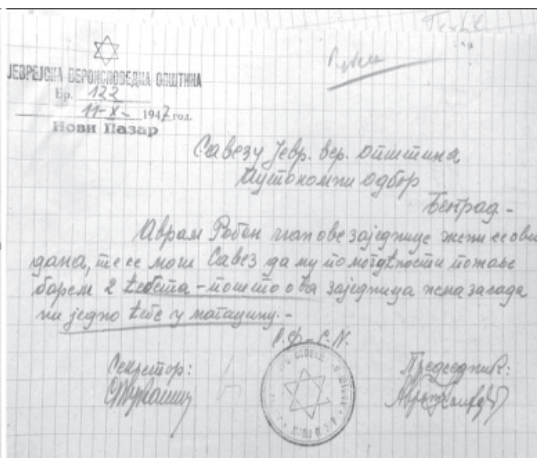 ЈЕВРЕЈСКА ВЕРОИСПОВЕДНА ОПШТИНА
Бр. 122
11-X- 1947 год.
Нови Пазар
Савезу Јевр. вер. општина
Аутономни одбор
Београд -
Аврам Робон члан ове заједнице жени се ових
дана, те се моли Савез да му по могућности пошаље
барем 2 ћебета - пошто ова заједница нема засада
ни једно ћебе у магацину. -
С.Ф.-С.Н.
Секретар:
Председник: